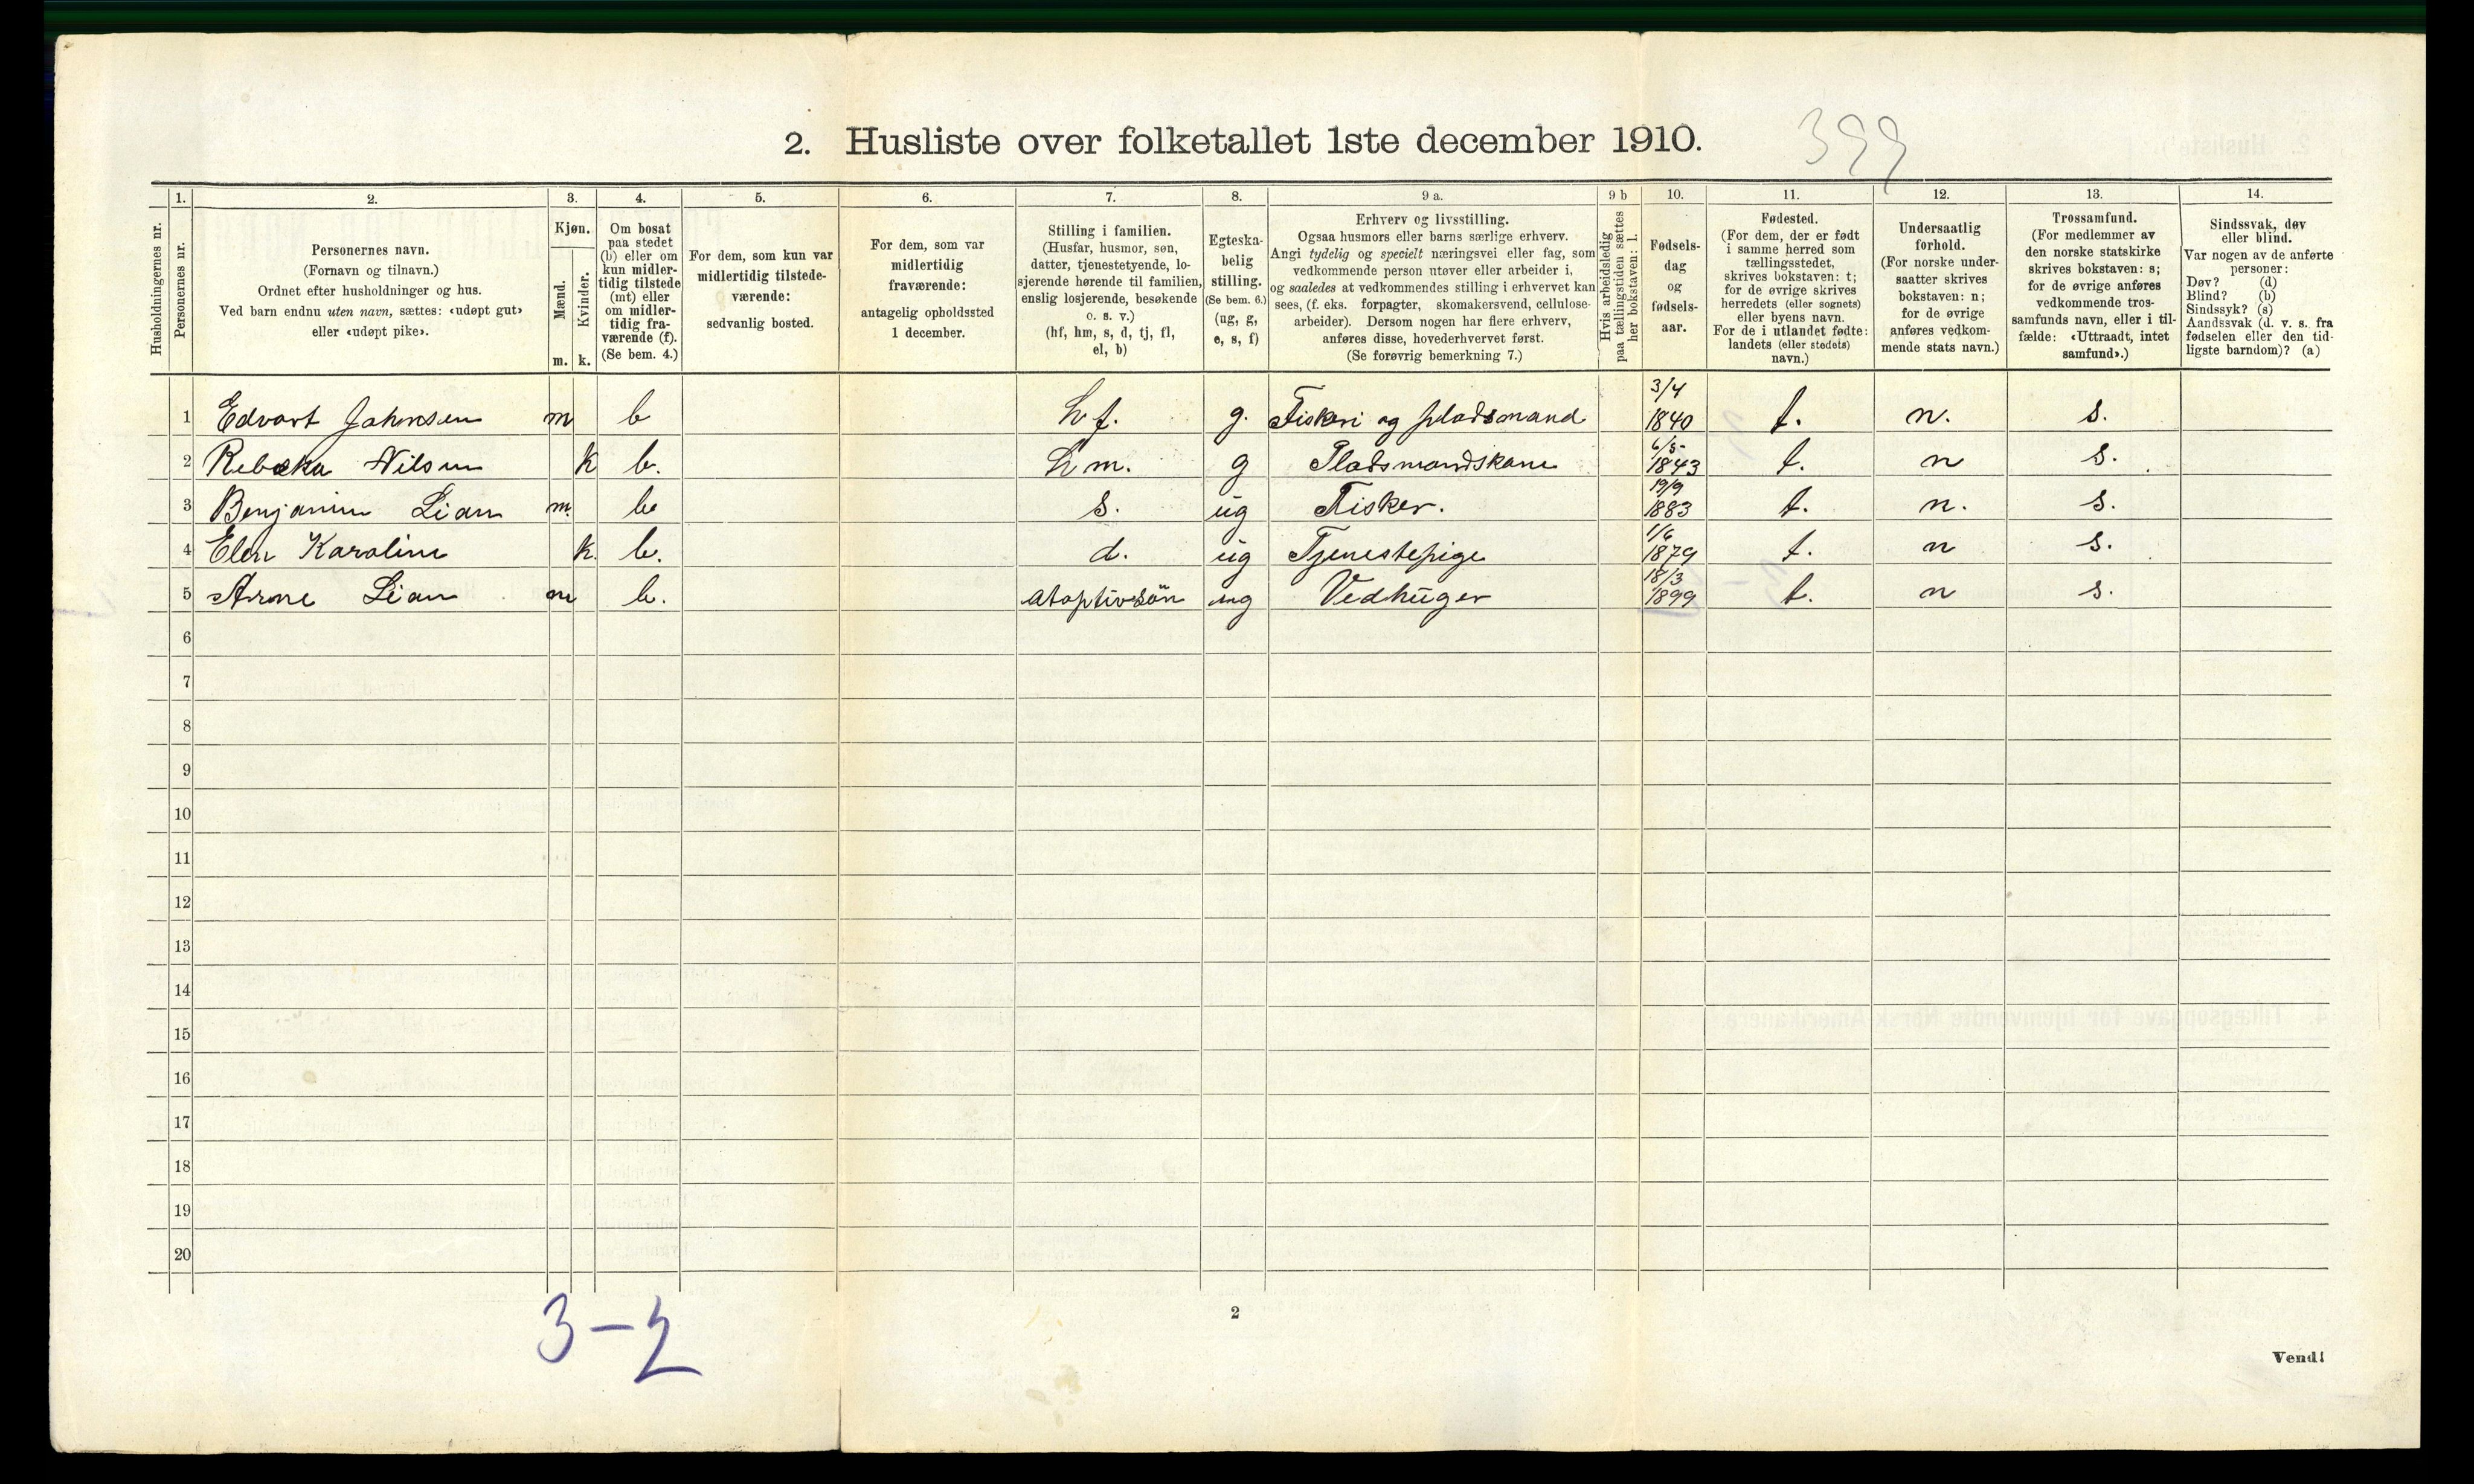 2. Husliste over folketallet 1ste december 1910.
399
Husholdningernes nr.
1.
Personernes nr.
2.
Personernes navn.
(Fornavn og tilnavn.)
Ordnet efter husholdninger og hus.
Ved barn endnu uten navn, sættes: «udøpt gut»
eller «udøpt pike».
3.
Kjøn.
Mænd.
Kvinder.
m. k.
4.
Om bosat
paa stedet
(b) eller om
kun midler-
tidig tilstede
(mt) eller
om midler-
tidig fra-
værende (f).
(Se bem. 4.)
5.
For dem, som kun var
midlertidig tilstede-
værende:
sedvanlig bosted.
6.
For dem, som var
midlertidig
fraværende:
antagelig opholdssted
1 december.
7.
Stilling i familien.
(Husfar, husmor, søn,
datter, tjenestetyende, lo-
sjerende hørende til familien,
enslig losjerende, besøkende
o. s. v.)
(hf, hm, s, d, tj, fl,
el, b)
8.
Egteska-
belig
stilling.
(Se bem. 6.)
(ug, g,
e, s, f)
9 a.
Erhverv og livsstilling.
Ogsaa husmors eller barns særlige erhverv.
Angi tydelig og specielt næringsvei eller fag, som
vedkommende person utøver eller arbeider i,
og saaledes at vedkommendes stilling i erhvervet kan
sees, (f. eks. forpagter, skomakersvend, cellulose-
arbeider). Dersom nogen har flere erhverv,
anføres disse, hovederhvervet først.
(Se forøvrig bemerkning 7.)
9 b
Hvis arbeidsledig
paa tællingstiden sættes
her bokstaven: l.
10.
Fødsels-
dag
og
fødsels-
aar.
11.
Fødested.
(For dem, der er født
i samme herred som
tællingsstedet,
skrives bokstaven: t;
for de øvrige skrives
herredets (eller sognets)
eller byens navn.
For de i utlandet fødte:
landets (eller stedets)
navn.)
12.
Undersaatlig
forhold.
(For norske under-
saatter skrives
bokstaven: n;
for de øvrige
anføres vedkom-
mende stats navn.)
13.
Trossamfund.
(For medlemmer av
den norske statskirke
skrives bokstaven: s;
for de øvrige anføres
vedkommende tros-
samfunds navn, eller i til-
fælde: «Uttraadt, intet
samfund».)
14.
Sindssvak, døv
eller blind.
Var nogen av de anførte
personer:
Døv? (d)
Blind? (b)
Sindssyk? (s)
Aandssvak (d. v. s. fra
fødselen eller den tid-
ligste barndom)? (a)
1 Edvart Johnsen m b hf. g. Fiskeri og pladsmand 3/4 1840 t. n. s.
2 Rebeka Nilsen k b. hm. g Pladsmandskone 6/5 1843 t. n s.
3 Benjamin Lian m. b s. ug Fisker. 19/9 1883 t. n. s.
4 Elen Karoline k. b. d. ug Tjenestepige 1/6 1879 t. n s.
5 Arne Lian m b. atoptivsön ug Vedhüger 18/3 1899 t. n s.
6
7
8
9
10
11
12
13
14
15
16
17
18
19
20
3-2
2
Vend!